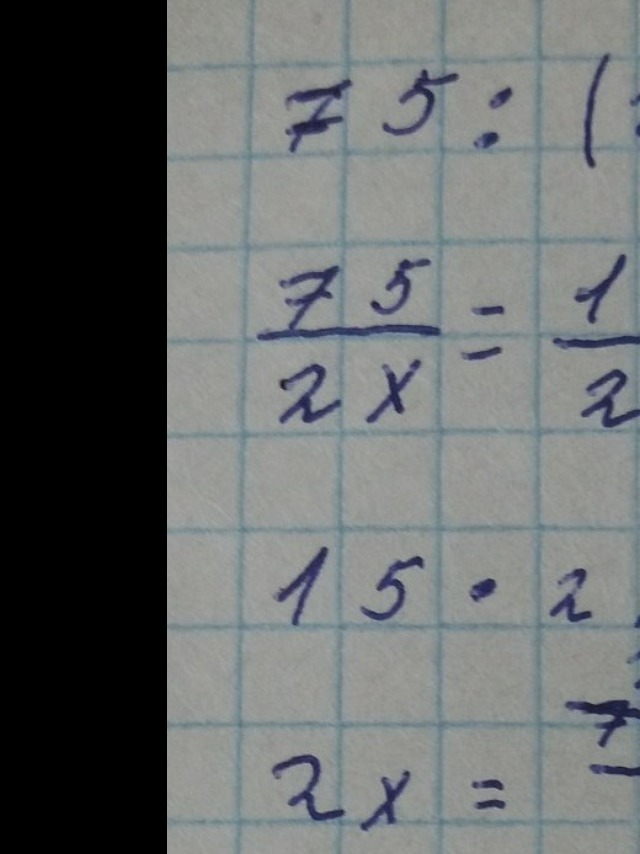 75 : (
75/2x = 1/2
15 · 2
2x = 7